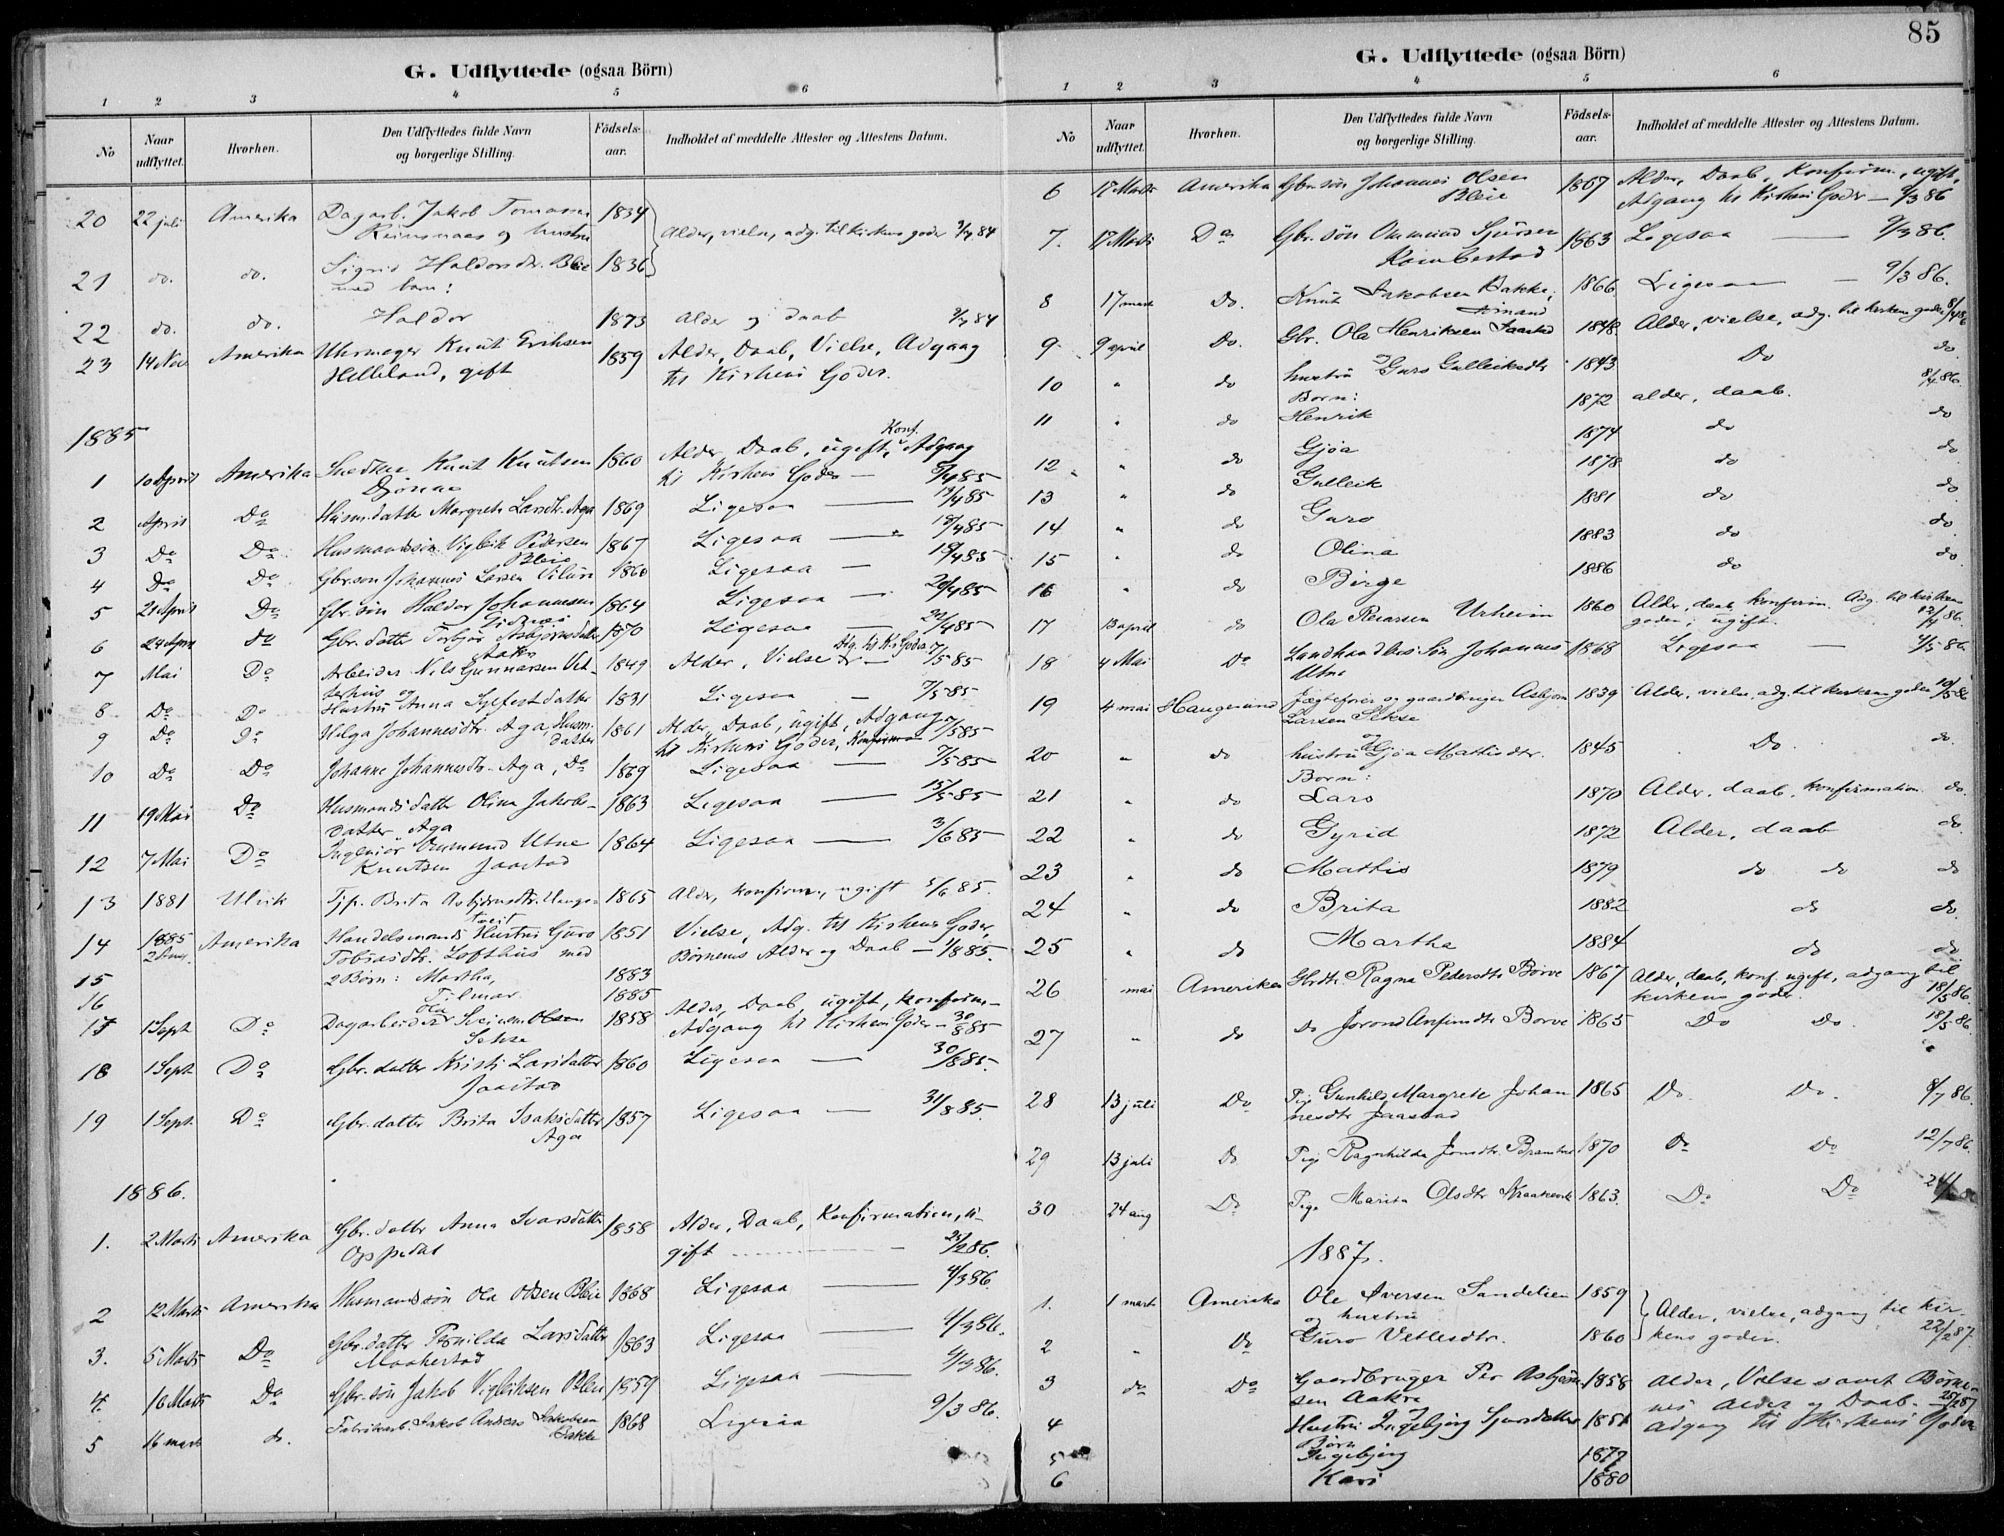 G. Udflyttede (ogsaa Börn)
1 2 3 4 5 6
No Naar udflyttet. Hvorhen. Den Udflyttedes fulde Navn og borgerlige Stilling. Födsels-aar. Indholdet af meddelte Attester og Attestens Datum.
20 22 juli Amerika Dagarb. Jakob Tomassen 1834
Reinsnaas og hustru Alder, vielse, adg. til kirkens goder
21 do. do. Sigrid Haldorsdtr. Bleie 1836
med barn:
22 do. do. Haldor 1873 Alder og daab
23 14 Nov Amerika Uhrmager Knut Eriksen 1859 Alder, Daab, Vielse, Adgang
Helleland, gift til Kirkens Goder.
1885
1 10 April Amerika Snedker Knut Knutsen 1860 Alder, Daab, ugift, Konf. Adgang
Djönne til Kirkens Goder
2 April Do Husm.datter Margrete Larsdtr. Aga 1869 Ligesaa
3 Do Do Husmandssön Vigleik Pedersen 1867 Ligesaa 18/4 85
Bleie
4 Do Do Gbr.sön Johannes Larsen 1860 Ligesaa 18/4 85
5 21 April Do Gbr.sön Haldor Johannesen 1864 Ligesaa 20/4 85
6 24 April do Gbr.datter Torbjör Asbjörnsdatter 1870 Ligesaa 22/4 85
7 Mai Do Arbeider Nils Gunnarsen 1849 Alder, Vielse Adg. til K. Goder 7/5 85
8 Do Do Hustru Anna Sjefestdatter 1831 Ligesaa 7/5 85
9 Do Do Helga Johannesdtr. Aga, Husm. 1861 Alder, Daab, ugift, Adgang 7/5 85
datter til Kirkens Goder, Konfirm
10 Do Do Johanne Johannesdtr. Aga, Do 1869 Ligesaa 7/5 85
11 19 Mai Do Husmandsdatter Olina Jakobs- 1863 Ligesaa 15/5 85
datter Aga
12 7 Mai Do Ingeniör Ommund Utne 1864 Ligesaa 3/6 85
Knutsen Jaastad
13 1881 Ulvik Tjp. Brita Asbjörnsdtr. 1865 Alder, konfirm., ugift 5/6 85.
14 1885 Amerika Handelsmands Hustru Guro 1851 Vielse, Adg. til Kirkens Goder,
Tobiasdtr. Lofthus med Börnenes Alder og Daab 1/8 85.
15 2 Börn: Martha, 1883
16 Tilmar 1885
17 1 Sept Do Dagarbeider Ola Sveinem Olsen 1858 Alder, Daab, ugift, konfirm-
Sekse Adgang til Kirkens Goder 30/8 85
18 1 Sept Do Gbr.datter Kristi Larsdatter 1860 Ligesaa 30/8 85.
Jaastad
19 1 Sept Do Gbr.datter Brita Isaksdatter 1857 Ligesaa 31/8 85.
Aga
1886.
1. 2 Marts Amerika Gbr.datter Anna Ivarsdatter 1858 Alder, Daab, Konfirmation, u-
Oppedal gift
2 12 Marts Amerika Husmandssön Ola Olsen Bleie 1868 Ligesaa 4/3 86.
3. 5 Marts Do Gbr.datter Pernilda Larsdatter 1863 Ligesaa 4/3 86.
Maakestad
4. 16 Marts Do Gbr.sön Jakob Vigleiksen Bleie 1859 Ligesaa
5 16 marts do. Fabrikarb. Jakob Anders Jakobsen 1868 Ligesaa 9/3 86.
Bakke
85
G. Udflyttede (ogsaa Börn)
1 2 3 4 5 6
No Naar udflyttet. Hvorhen. Den Udflyttedes fulde Navn og borgerlige Stilling. Födsels-aar. Indholdet af meddelte Attester og Attestens Datum.
6 17 Marts Amerika Gbr.sön Johannes Olsen 1867 Alder, Daab, Konfirm., ugift,
Bleie Adgang til Kirkens Goder 9/3 86
7. 17 Marts Do Gbr.sön Ommund Sjursen 1863 Ligesaa 9/3 86.
Kambestad
8 17 mart Do. Knut Jakobsen Bakke, 1866 Ligesaa 9/3 86.
9 9 april Do. Gbr. Ola Henriksen Jaastad 1848 Alder, vielse, adg. til kirkens goder 8/4 86
10 " do hustru og Guro Gulleiksdtr 1843 Do do.
Born:
11 " do Henrik 1872 alder, daab. 8/4 86.
12 " do Gjøa 1874 do do
13 " do Gulleik 1878 do do
14 " do Guro 1881 do do
15 " do Olina 1883 do do
16 " do Birge 1886 do do
17 13 april do Ola Peearsen Urheim 1860 Alder, daab, konfirm. Adg. til kirkens
goder, ugift. 12/4 86.
18 4 Mai Do Landhandlers Sön Johannes 1868 Ligesaa 4/5 86
Utne
19 4 mai Haugesund Jægtefører og gaardbruger Asbjørn 1839 Alder, vielse, adg. til kirkens goder 10/5 86
Larsen Sekse
20 " do hustru og Gjøa Mathisdtr. 1845 Do. do.
Born:
21 " do Lars 1870 Alder, daab, konfirmation do.
22 " do Gyrid 1872 Alder, daab do.
23 " do Mathis 1879 do do do
24 " do Brita 1882 do do.
25 " do Martha 1884 do do
26 " mai Amerika Gbrdtr. Ragna Pedersdtr Børve 1867 Alder, daab, konf. ugift, adgang til
kirkens goder. 18/5 86.
27 " do do Jorond Arfinndtr Børve 1865 Do Do. 18/5 86.
28 13 juli Do Pige Gunhild Margrete Johan 1865 Do. Do. 8/7 86.
nesdtr Jaastad
29 13 juli Do Pige Ragnhilda Jonsdtr. 1870 Do Do 12/7 86.
30 24 aug Do Pige Marita Olsdtr Kraakevik 1863. Do. Do
1887.
1. 1 mart Amerika Ole Iversen Sandelien 1859 Alder, vielse, adgang til kir
og hustru kens goder. 22/2 87.
2 " Do Guro Vetlesdtr. 1860
3 do Do Gaardbruger Per Asbjörn 1858 Alder, Vielse samt Börne-
sen Aakre nes Alder og Daab. 25/2 87
4 og Hustru Ingebjörg Sjursdatter 1851 Adgang til Kirkens Goder
Börn
5 Ingebjörg 1877
6 Kari 1880